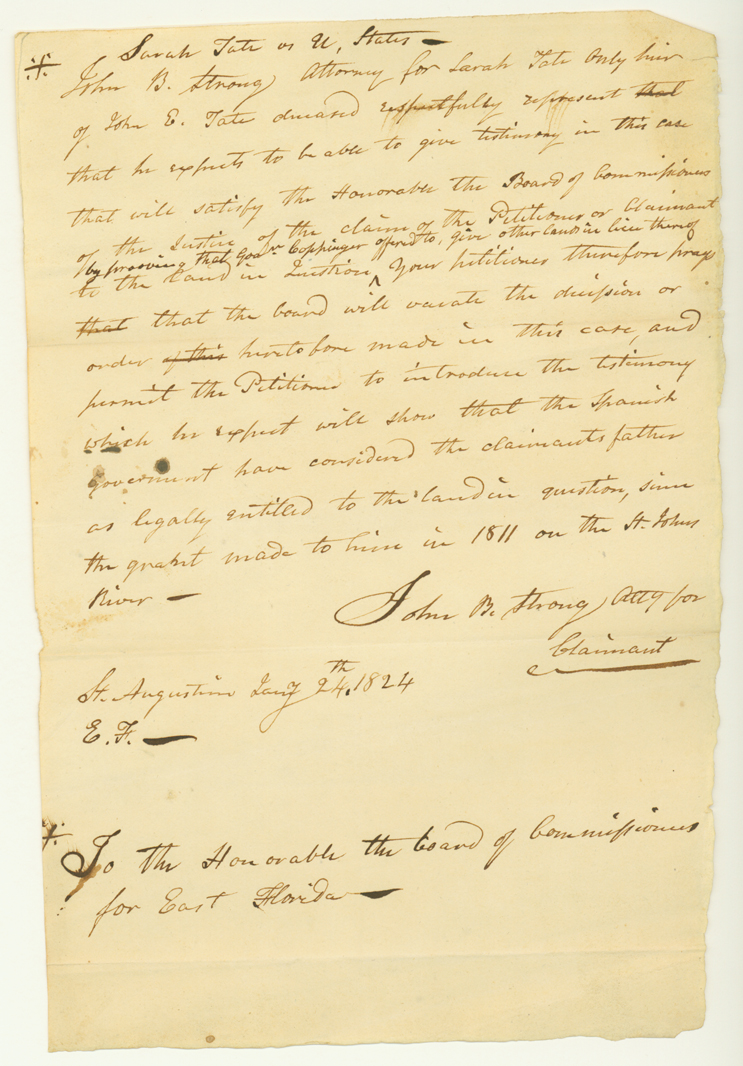 Sarah Tate vs U, States —
John B. Strong Attorney for Sarah Tate only heir
of John E. Tate deceased respectfully represent that
that he expects to be able to give testimony in this case
that will satisfy the Honorable the Board of Commissioners
of the Justice of the claim of the Petitioner or Claimant
by prooving that Govr. Coppinger offered to, give other lands in lieu thereof
to the land in Question ^ Your petitioner therefore prays
that that the board will vacate the decission or
order of this heretofore made in this case, and
permit the Petitioner to introduce the testimony
which he expect will show that the Spanish
government have considered the claimants father
as legally entitled to the land in question, since
the grahnt made to him in 1811 on the St. Johns
River —
John B. Strong Atty for
Claimant
St. Augustine Jany 24th. 1824
E. F. —
To the Honorable the board of Commissioners
for East Florida —